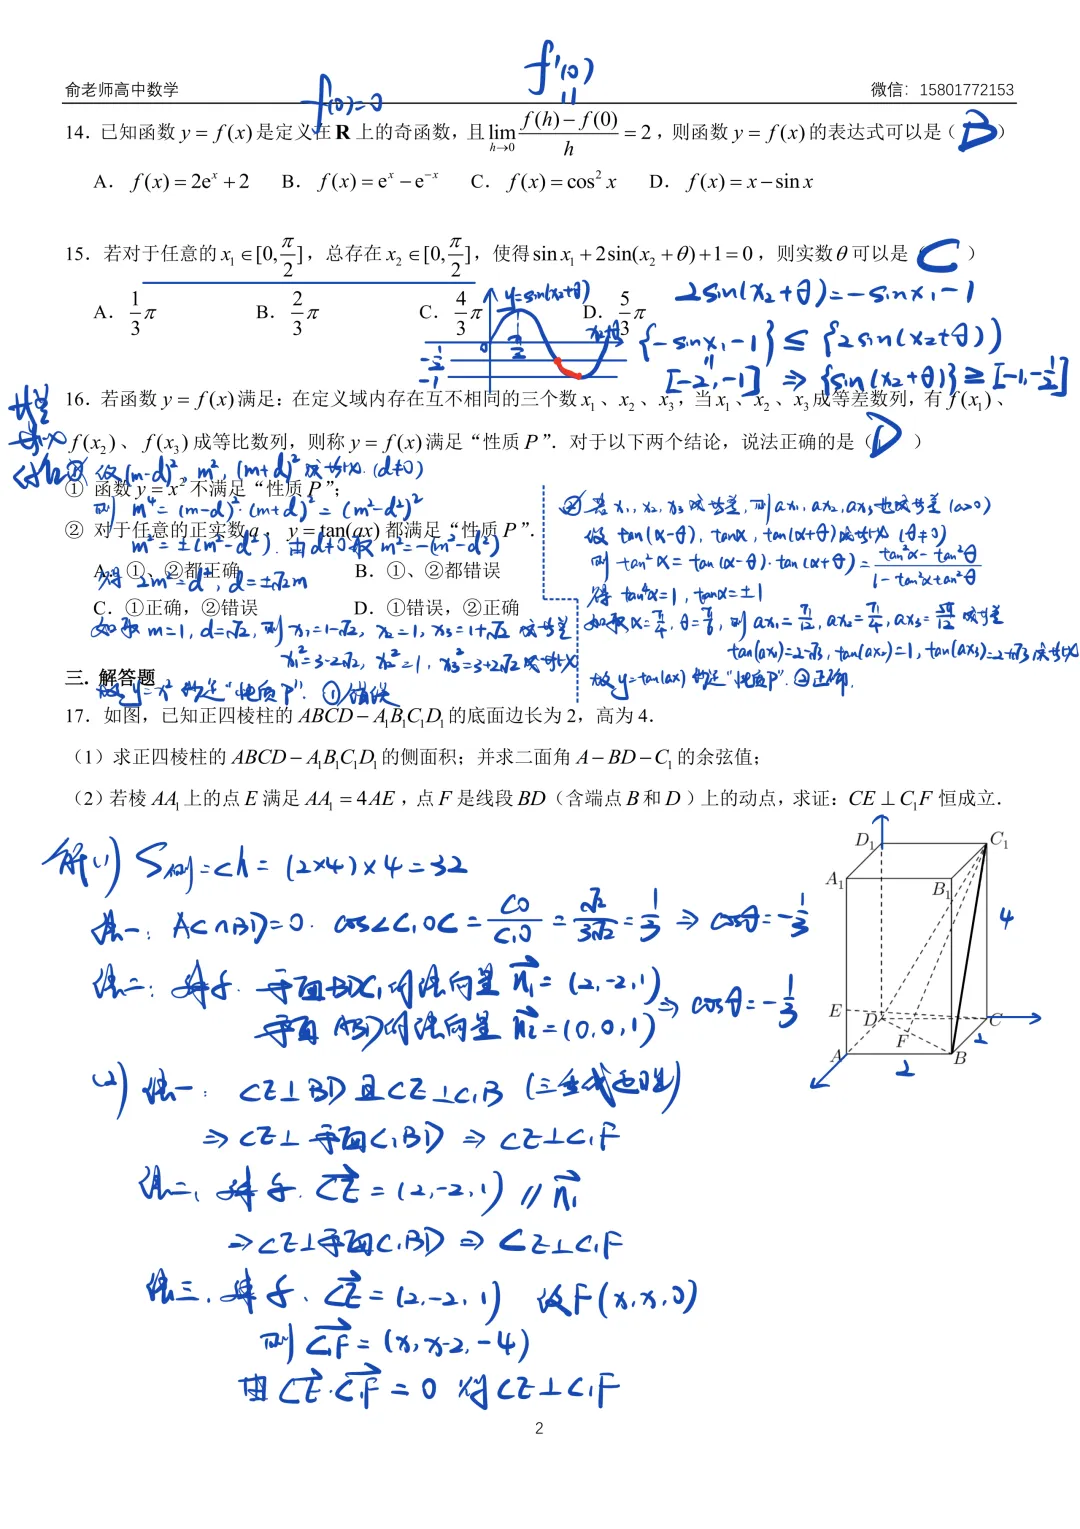 俞老师高中数学 微信：15801772153
f(0)=0
f'(0)
||
14．已知函数 y = f(x) 是定义在 R 上的奇函数，且 lim_{h→0} (f(h) − f(0))/h = 2，则函数 y = f(x) 的表达式可以是（ B ）
A． f(x) = 2e^x + 2 B． f(x) = e^x − e^{−x} C． f(x) = cos² x D． f(x) = x − sin x
15．若对于任意的 x₁ ∈ [0, π/2]，总存在 x₂ ∈ [0, π/2]，使得 sin x₁ + 2sin(x₂ + θ) + 1 = 0，则实数 θ 可以是（ C ）
A． 1/3 π B． 2/3 π C． 4/3 π D． 5/3 π
y=sin(x₂+θ)
x₂+θ
0
π/2
-1/2
-1
2sin(x₂+θ)=-sinx₁-1
{-sinx₁-1} ⊆ {2sin(x₂+θ)}
||
[-2,-1] ⇒ {sin(x₂+θ)} ⊇ [-1,-1/2]
16．若函数 y = f(x) 满足：在定义域内存在互不相同的三个数 x₁、x₂、x₃，当 x₁、x₂、x₃ 成等差数列，有 f(x₁)、
f(x₂)、f(x₃) 成等比数列，则称 y = f(x) 满足“性质 P”．对于以下两个结论，说法正确的是（ D ）
① 设 (m-d)², m², (m+d)² 成等比. (d≠0)
① 函数 y = x² 不满足“性质 P”；
则 m⁴=(m-d)²·(m+d)²=(m²-d²)²
② 对于任意的正实数 a，y = tan(ax) 都满足“性质 P”．
m²=±(m²-d²). 由d≠0取 m²=-(m²-d²)
A．①、②都正确 B．①、②都错误
得 2m²=d², d=±√2m
C．①正确，②错误 D．①错误，②正确
如取 m=1, d=√2, 则 x₁=1-√2, x₂=1, x₃=1+√2 成等差
x₁²=3-2√2, x₂²=1, x₃²=3+2√2 成等比
故 y=x² 满足“性质P”. ①错误
② 若 x₁, x₂, x₃ 成等差, 则 ax₁, ax₂, ax₃ 也成等差 (a>0)
设 tan(α-θ), tanα, tan(α+θ) 成等比 (θ≠0)
则 tan²α = tan(α-θ)·tan(α+θ) = (tan²α-tan²θ)/(1-tan²α·tan²θ)
得 tan⁴α=1, tanα=±1
如取 α=π/4, θ=π/6, 则 ax₁=π/12, ax₂=π/4, ax₃=5π/12 成等差
tan(ax₁)=2-√3, tan(ax₂)=1, tan(ax₃)=2+√3 成等比
故 y=tan(ax) 满足“性质P”. ②正确.
三．解答题
17．如图，已知正四棱柱的 ABCD − A₁B₁C₁D₁ 的底面边长为 2，高为 4．
（1）求正四棱柱的 ABCD − A₁B₁C₁D₁ 的侧面积；并求二面角 A − BD − C₁ 的余弦值；
（2）若棱 AA₁ 上的点 E 满足 AA₁ = 4AE，点 F 是线段 BD（含端点 B 和 D ）上的动点，求证：CE ⊥ C₁F 恒成立．
解(1) S侧=ch=(2×4)×4=32
法一: AC∩BD=O. cos∠C₁OC = CO/C₁O = √2/3√2 = 1/3 ⇒ cosθ=-1/3
法二: 建系. 平面BDC₁的法向量 n₁=(2,-2,1)
平面ABD的法向量 n₂=(0,0,1) ⇒ cosθ=-1/3
(2) 法一: CE⊥BD且CE⊥C₁B (三垂线定理)
⇒ CE⊥平面C₁BD ⇒ CE⊥C₁F
法二、建系. CE=(2,-2,1) // n₁
⇒ CE⊥平面C₁BD ⇒ CE⊥C₁F
法三、建系、CE=(2,-2,1) 设F(x,x,0)
则 C₁F=(x,x-2,-4)
由 CE·C₁F=0 得CE⊥C₁F
D₁ C₁
A₁ B₁
4
E D C
F 2
A 2 B
2